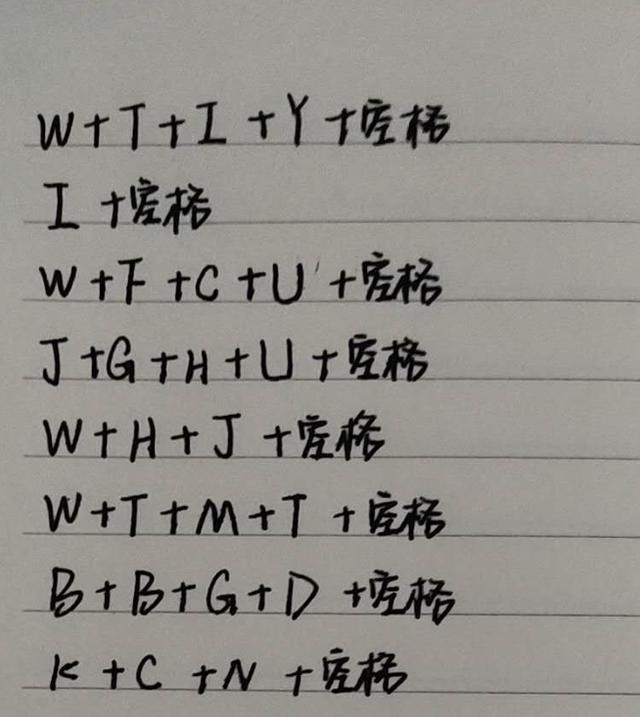 W+T+I+Y+空格
I+空格
W+F+C+U+空格
J+G+H+U+空格
W+H+J+空格
W+T+M+T+空格
B+B+G+D+空格
K+C+N+空格